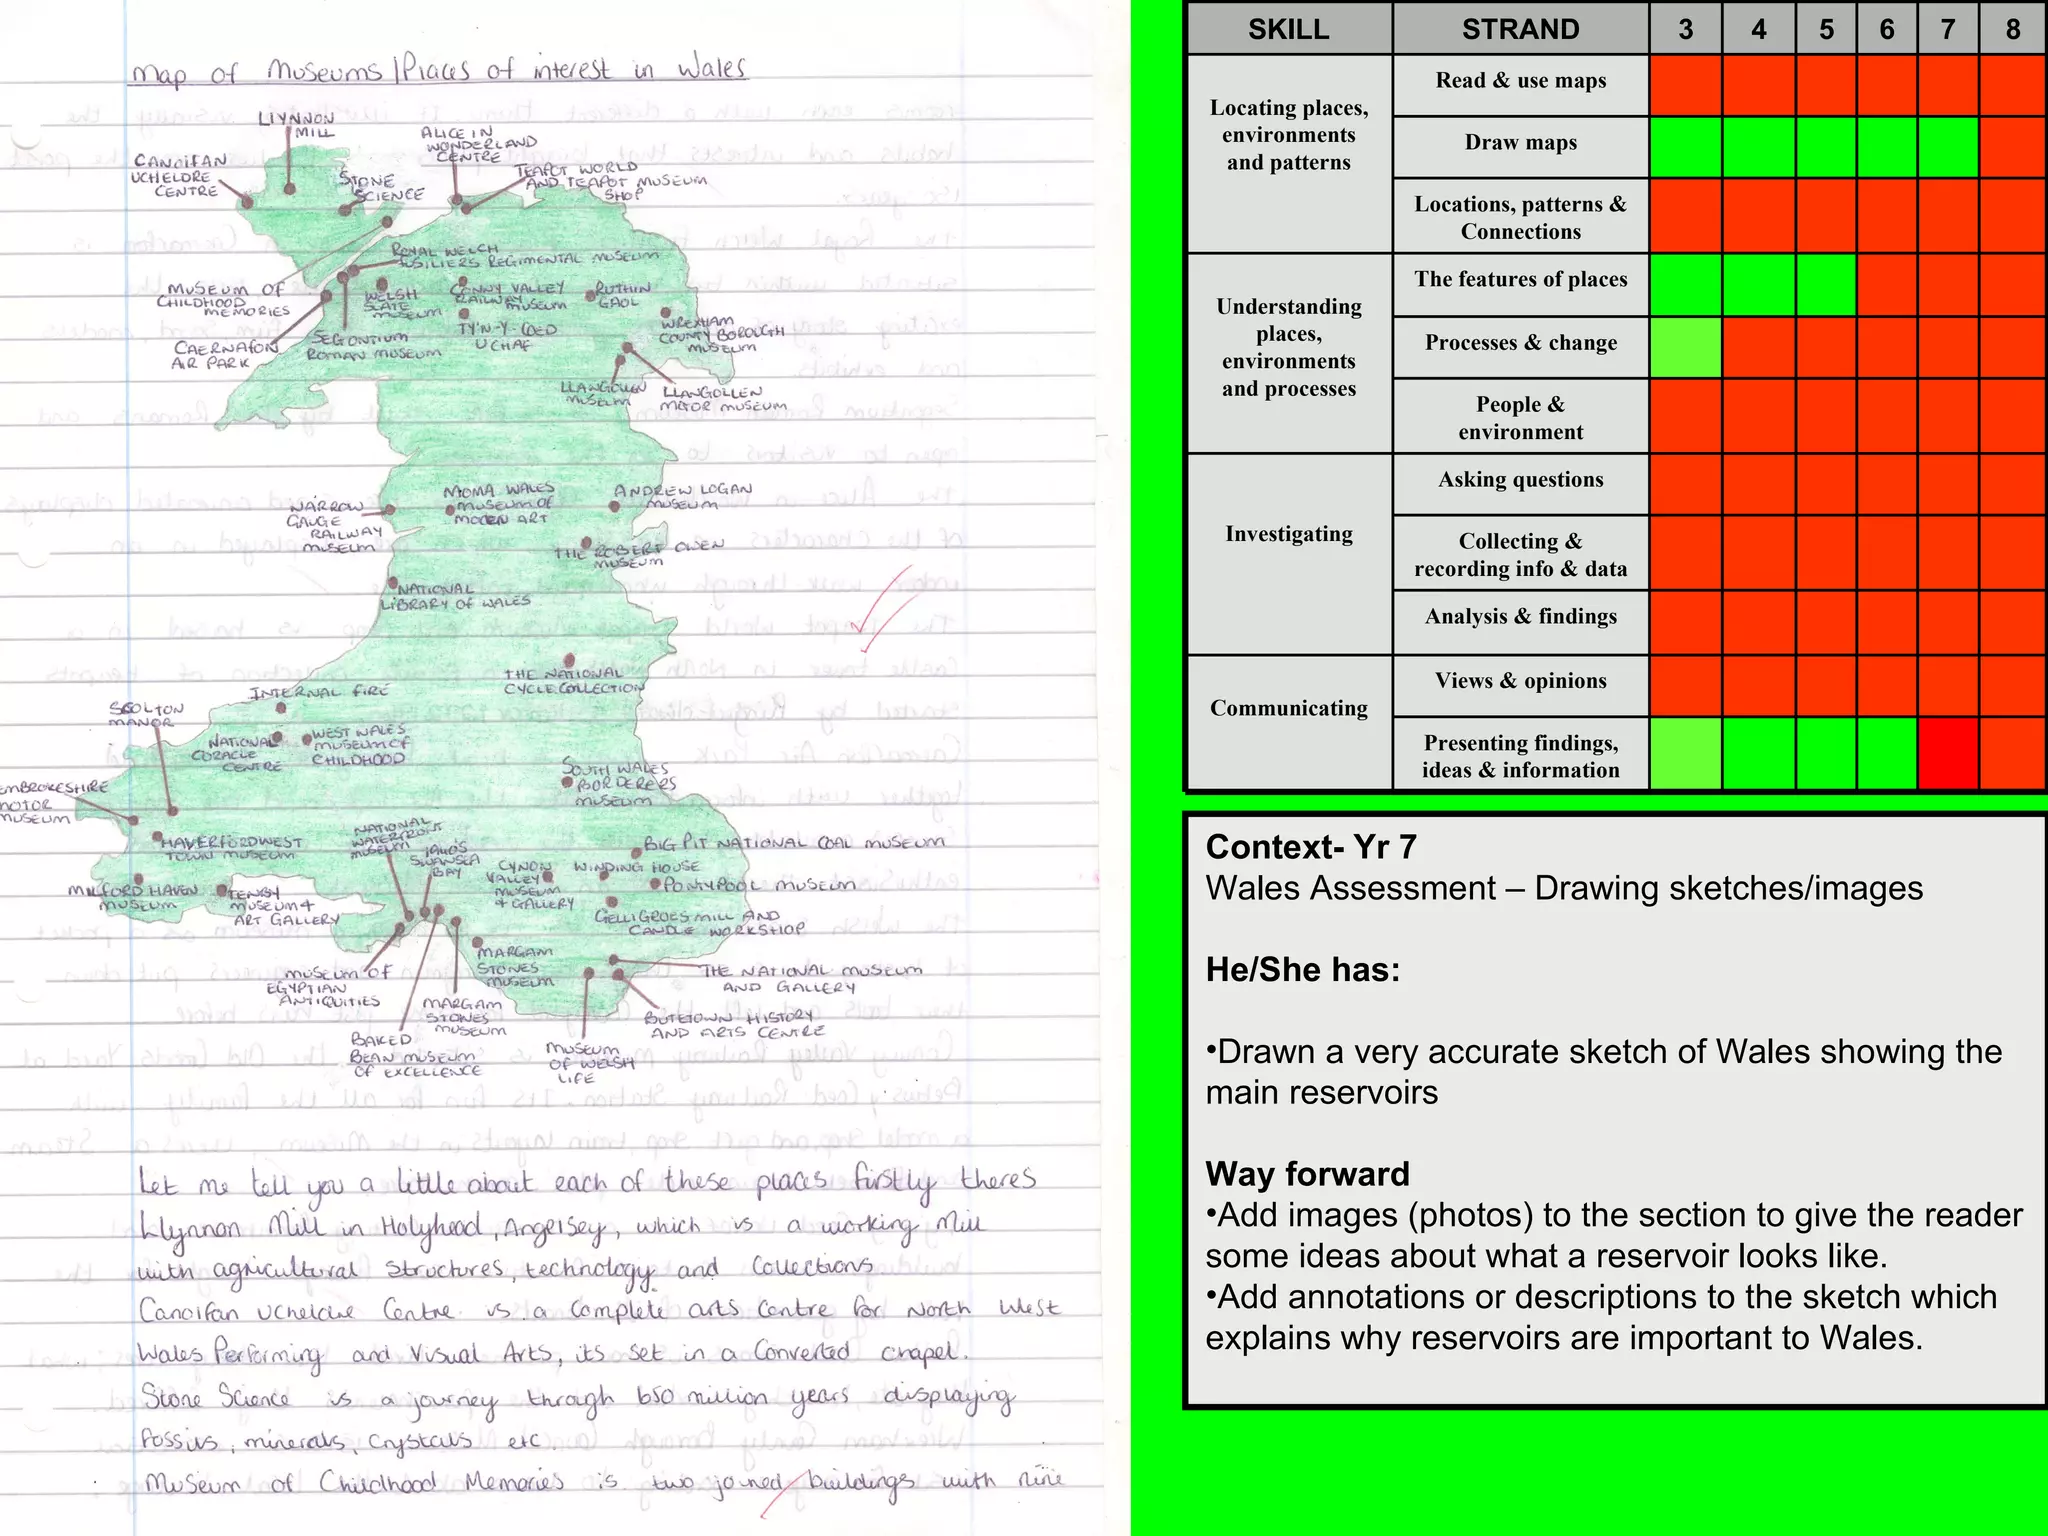 Map of Museums/Places of interest in Wales
LLYNNON
MILL
CANOLFAN
UCHELDRE
CENTRE
STONE
SCIENCE
ALICE IN
WONDERLAND
CENTRE
TEAPOT WORLD
AND TEAPOT MUSEUM
SHOP
ROYAL WELCH
FUSILIERS REGIMENTAL MUSEUM
MUSEUM OF
CHILDHOOD
MEMORIES
WELSH
SLATE
MUSEUM
CONWY VALLEY
RAILWAY
MUSEUM
RUTHIN
GAOL
CAERNAFON
AIR PARK
SEGONTIUM
ROMAN MUSEUM
TY'N-Y-COED
UCHAF
WREXHAM
COUNTY BOROUGH
MUSEUM
LLANGOLLEN
MUSEUM
LLANGOLLEN
MOTOR MUSEUM
NARROW
GAUGE
RAILWAY
MUSEUM
MOMA WALES
MUSEUM OF
MODERN ART
ANDREW LOGAN
MUSEUM
THE ROBERT OWEN
MUSEUM
NATIONAL
LIBRARY OF WALES
THE NATIONAL
CYCLE COLLECTION
INTERNAL FIRE
SCOLTON
MANOR
NATIONAL
CORACLE
CENTRE
WEST WALES
MUSEUM OF
CHILDHOOD
SOUTH WALES
BORDERERS
MUSEUM
EMBROKESHIRE
MOTOR
MUSEUM
HAVERFORDWEST
TOWN MUSEUM
NATIONAL
WATERFRONT
MUSEUM
SWANSEA
BAY
CYNON
VALLEY
MUSEUM
& GALLERY
WINDING HOUSE
BIG PIT NATIONAL COAL MUSEUM
PONTYPOOL MUSEUM
MILFORD HAVEN
MUSEUM
TENBY
MUSEUM &
ART GALLERY
GELLIGROES MILL AND
CANDLE WORKSHOP
MUSEUM OF
EGYPTIAN
ANTIQUITIES
MARGAM
STONES
MUSEUM
MARGAM
STONES
MUSEUM
THE NATIONAL MUSEUM
AND GALLERY
BAKED
BEAN MUSEUM
OF EXCELLENCE
MUSEUM
OF WELSH
LIFE
BUTETOWN HISTORY
AND ARTS CENTRE
Let me tell you a little about each of these places firstly theres
Llynnon Mill in Holyhead, Angelsey, which is a working Mill
with agricultural structures, technology and Collections.
Canolfan Ucheldre Centre is a Complete arts Centre for North West
Wales Performing and Visual Arts, its set in a Converted chapel.
Stone Science is a journey through 650 million years displaying
fossils, minerals, Crystals etc.
Museum of Childhood Memories is two joined buildings with nine
SKILL STRAND 3 4 5 6 7 8
Locating places,
environments
and patterns
Read & use maps
Draw maps
Locations, patterns &
Connections
Understanding
places,
environments
and processes
The features of places
Processes & change
People &
environment
Investigating
Asking questions
Collecting &
recording info & data
Analysis & findings
Communicating
Views & opinions
Presenting findings,
ideas & information
Context- Yr 7
Wales Assessment – Drawing sketches/images
He/She has:
•Drawn a very accurate sketch of Wales showing the
main reservoirs
Way forward
•Add images (photos) to the section to give the reader
some ideas about what a reservoir looks like.
•Add annotations or descriptions to the sketch which
explains why reservoirs are important to Wales.